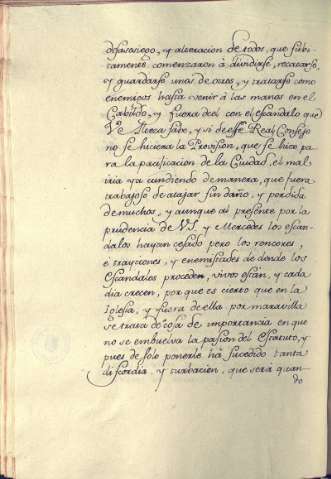 desasosiego, y alteracion de todos, que subi-
tamente comenzaron à dividirse, recatarse,
y guardarse unos de otros, y tratarse como
enemigos hasta venir à las manos en el
Cabildo, y fuera de el con el escandalo que
Vª Alteza sabe, y si de esse Real Consejo
no se huciera la Provision, que se hico pa
ra la pacificacion de la Ciudad, el mal
iria ya cundiendo de manera, que fuera
trabajoso de atajar sin daño, y perdida
de muchos, y aunque al presente por la
prudencia de V.S. y Mercedes los escan-
dalos hayan cesado pero los roncores,
è trayciones, y enemistades de donde los
Escandales proceden, vivos están, y cada
dia crecen, por que es cierto que en la
Iglesia, y fuera de ella por maravilla
se trata de cosa de importancia en que
no se embuelva la pasion del Estatuto, y
pues de solo ponerle há sucedido tanta
discordia y turbacion, que será quan-
do